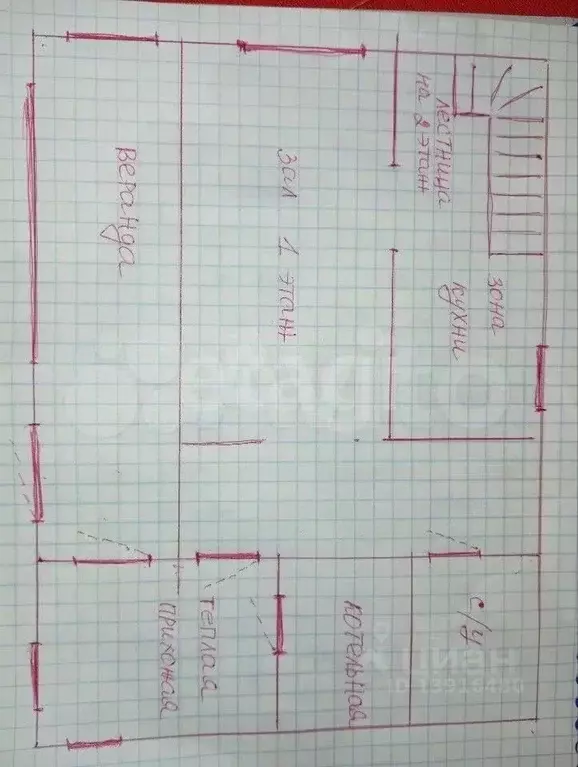 лестница
на 2 этаж
зона
кухни
зал 1 этаж
веранда
с/у
котельная
теплая
прихожая
циан